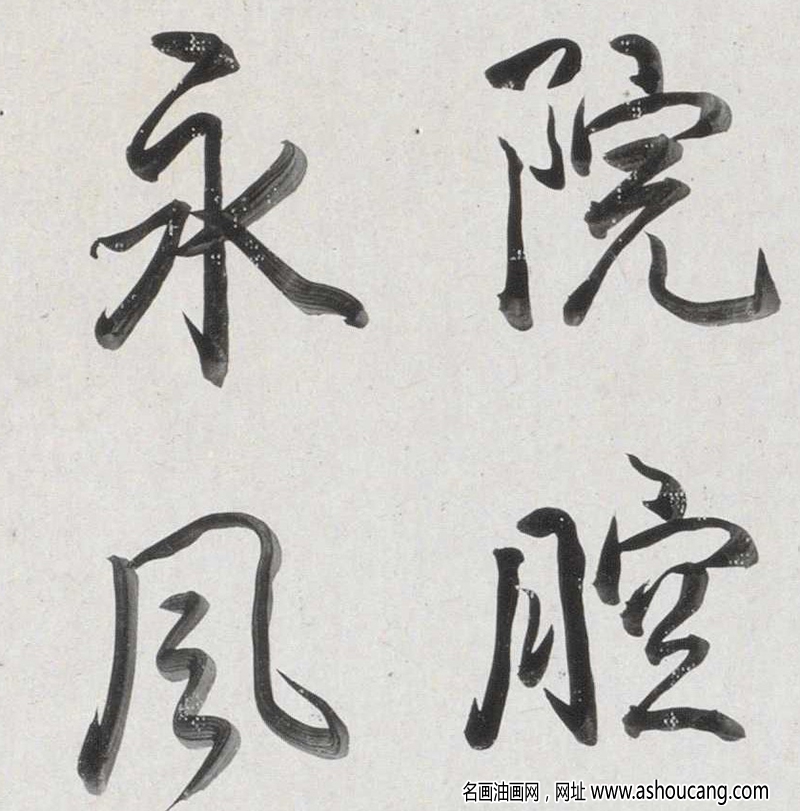 院腔
永风
名画油画网，网址 www.ashoucang.com